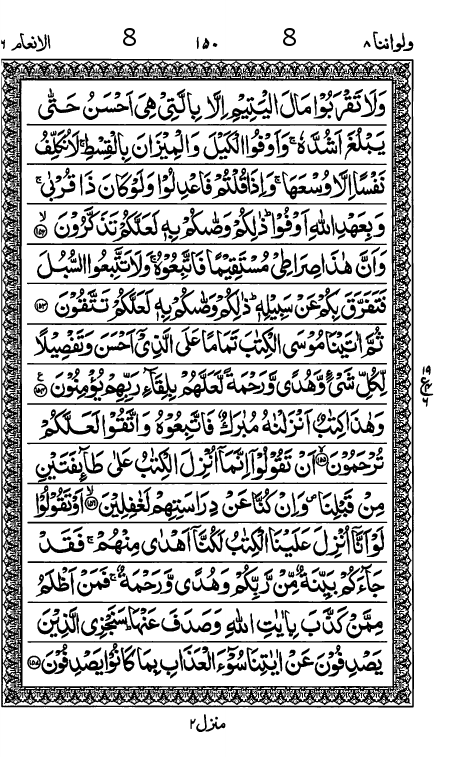 ولواننا ٨ 8 ١٥٠ 8 الانعام ٦
وَلَا تَقْرَبُوْا مَالَ الْيَتِيْمِ اِلَّا بِالَّتِيْ هِيَ اَحْسَنُ حَتّٰى
يَبْلُغَ اَشُدَّهٗ ۚ وَاَوْفُوا الْكَيْلَ وَالْمِيْزَانَ بِالْقِسْطِ ۚ لَا نُكَلِّفُ
نَفْسًا اِلَّا وُسْعَهَا ۚ وَاِذَا قُلْتُمْ فَاعْدِلُوْا وَلَوْ كَانَ ذَا قُرْبٰى ۚ
وَبِعَهْدِ اللّٰهِ اَوْفُوْا ۭ ذٰلِكُمْ وَصّٰىكُمْ بِهٖ لَعَلَّكُمْ تَذَكَّرُوْنَ ۙ﴿١٥٢﴾
وَاَنَّ هٰذَا صِرَاطِيْ مُسْتَقِيْمًا فَاتَّبِعُوْهُ ۚ وَلَا تَتَّبِعُوا السُّبُلَ
فَتَفَرَّقَ بِكُمْ عَنْ سَبِيْلِهٖ ۭ ذٰلِكُمْ وَصّٰىكُمْ بِهٖ لَعَلَّكُمْ تَتَّقُوْنَ ﴿١٥٣﴾
ثُمَّ اٰتَيْنَا مُوْسَى الْكِتٰبَ تَمَامًا عَلَى الَّذِيْٓ اَحْسَنَ وَتَفْصِيْلًا
لِّكُلِّ شَيْءٍ وَّهُدًى وَّرَحْمَةً لَّعَلَّهُمْ بِلِقَاۗءِ رَبِّهِمْ يُؤْمِنُوْنَ ﴿١٥٤﴾ ع
١٩
ع
٦
وَهٰذَا كِتٰبٌ اَنْزَلْنٰهُ مُبٰرَكٌ فَاتَّبِعُوْهُ وَاتَّقُوْا لَعَلَّكُمْ
تُرْحَمُوْنَ ۙ﴿١٥٥﴾ اَنْ تَقُوْلُوْٓا اِنَّمَآ اُنْزِلَ الْكِتٰبُ عَلٰى طَاۗىِٕفَتَيْنِ
مِنْ قَبْلِنَا ۠ وَاِنْ كُنَّا عَنْ دِرَاسَتِهِمْ لَغٰفِلِيْنَ ۙ﴿١٥٦﴾ اَوْ تَقُوْلُوْا
لَوْ اَنَّآ اُنْزِلَ عَلَيْنَا الْكِتٰبُ لَكُنَّآ اَهْدٰى مِنْهُمْ ۚ فَقَدْ
جَاۗءَكُمْ بَيِّنَةٌ مِّنْ رَّبِّكُمْ وَهُدًى وَّرَحْمَةٌ ۚ فَمَنْ اَظْلَمُ
مِمَّنْ كَذَّبَ بِاٰيٰتِ اللّٰهِ وَصَدَفَ عَنْهَا ۭ سَنَجْزِي الَّذِيْنَ
يَصْدِفُوْنَ عَنْ اٰيٰتِنَا سُوْۗءَ الْعَذَابِ بِمَا كَانُوْا يَصْدِفُوْنَ ﴿١٥٧﴾
منزل ٢